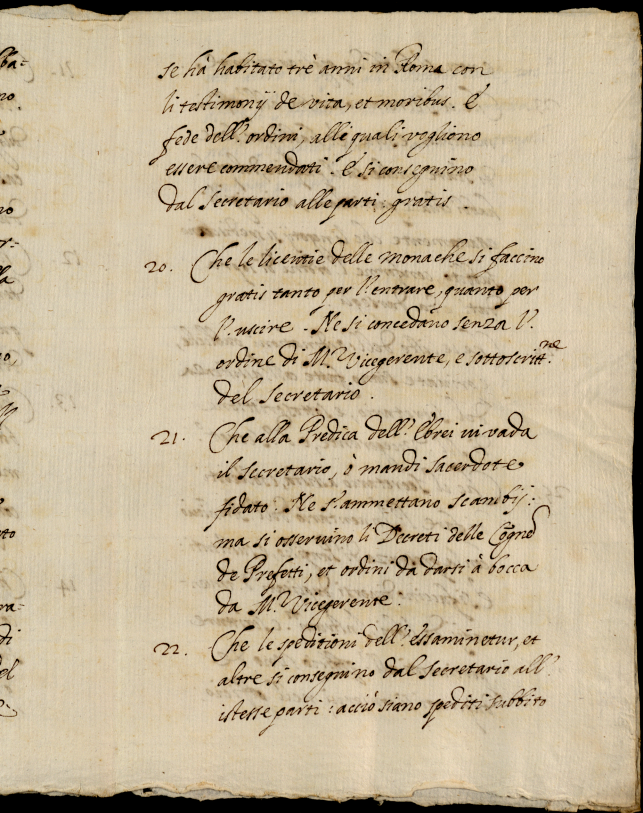 se hà habitato trè anni in Roma con
li testimonij de vita, et moribus. E
fede dell'ordini, alli quali vogliono
essere commendati. E si conseguino
dal Secretario alle parti gratis.
20. Che le licentie delle monache si faccino
gratis tanto per l'entrare, quanto per
l'uscire. Ne si concedano senza l'
ordine di M.r Vicegerente, e sottoscritt.ne
del Secretario.
21. Che alla Predica dell'Ebrei vi vada
il Secretario, ò mandi Sacerdote
fidato. Ne s'ammettano scambij:
ma si osservino li Decreti delle Cogne
de Prefetti, et ordini da darsi à bocca
da M.r Vicegerente.
22. Che le speditioni dell'essaminetur, et
altre si conseguino dal Secretario all'
istesse parti: acciò siano spediti subbito